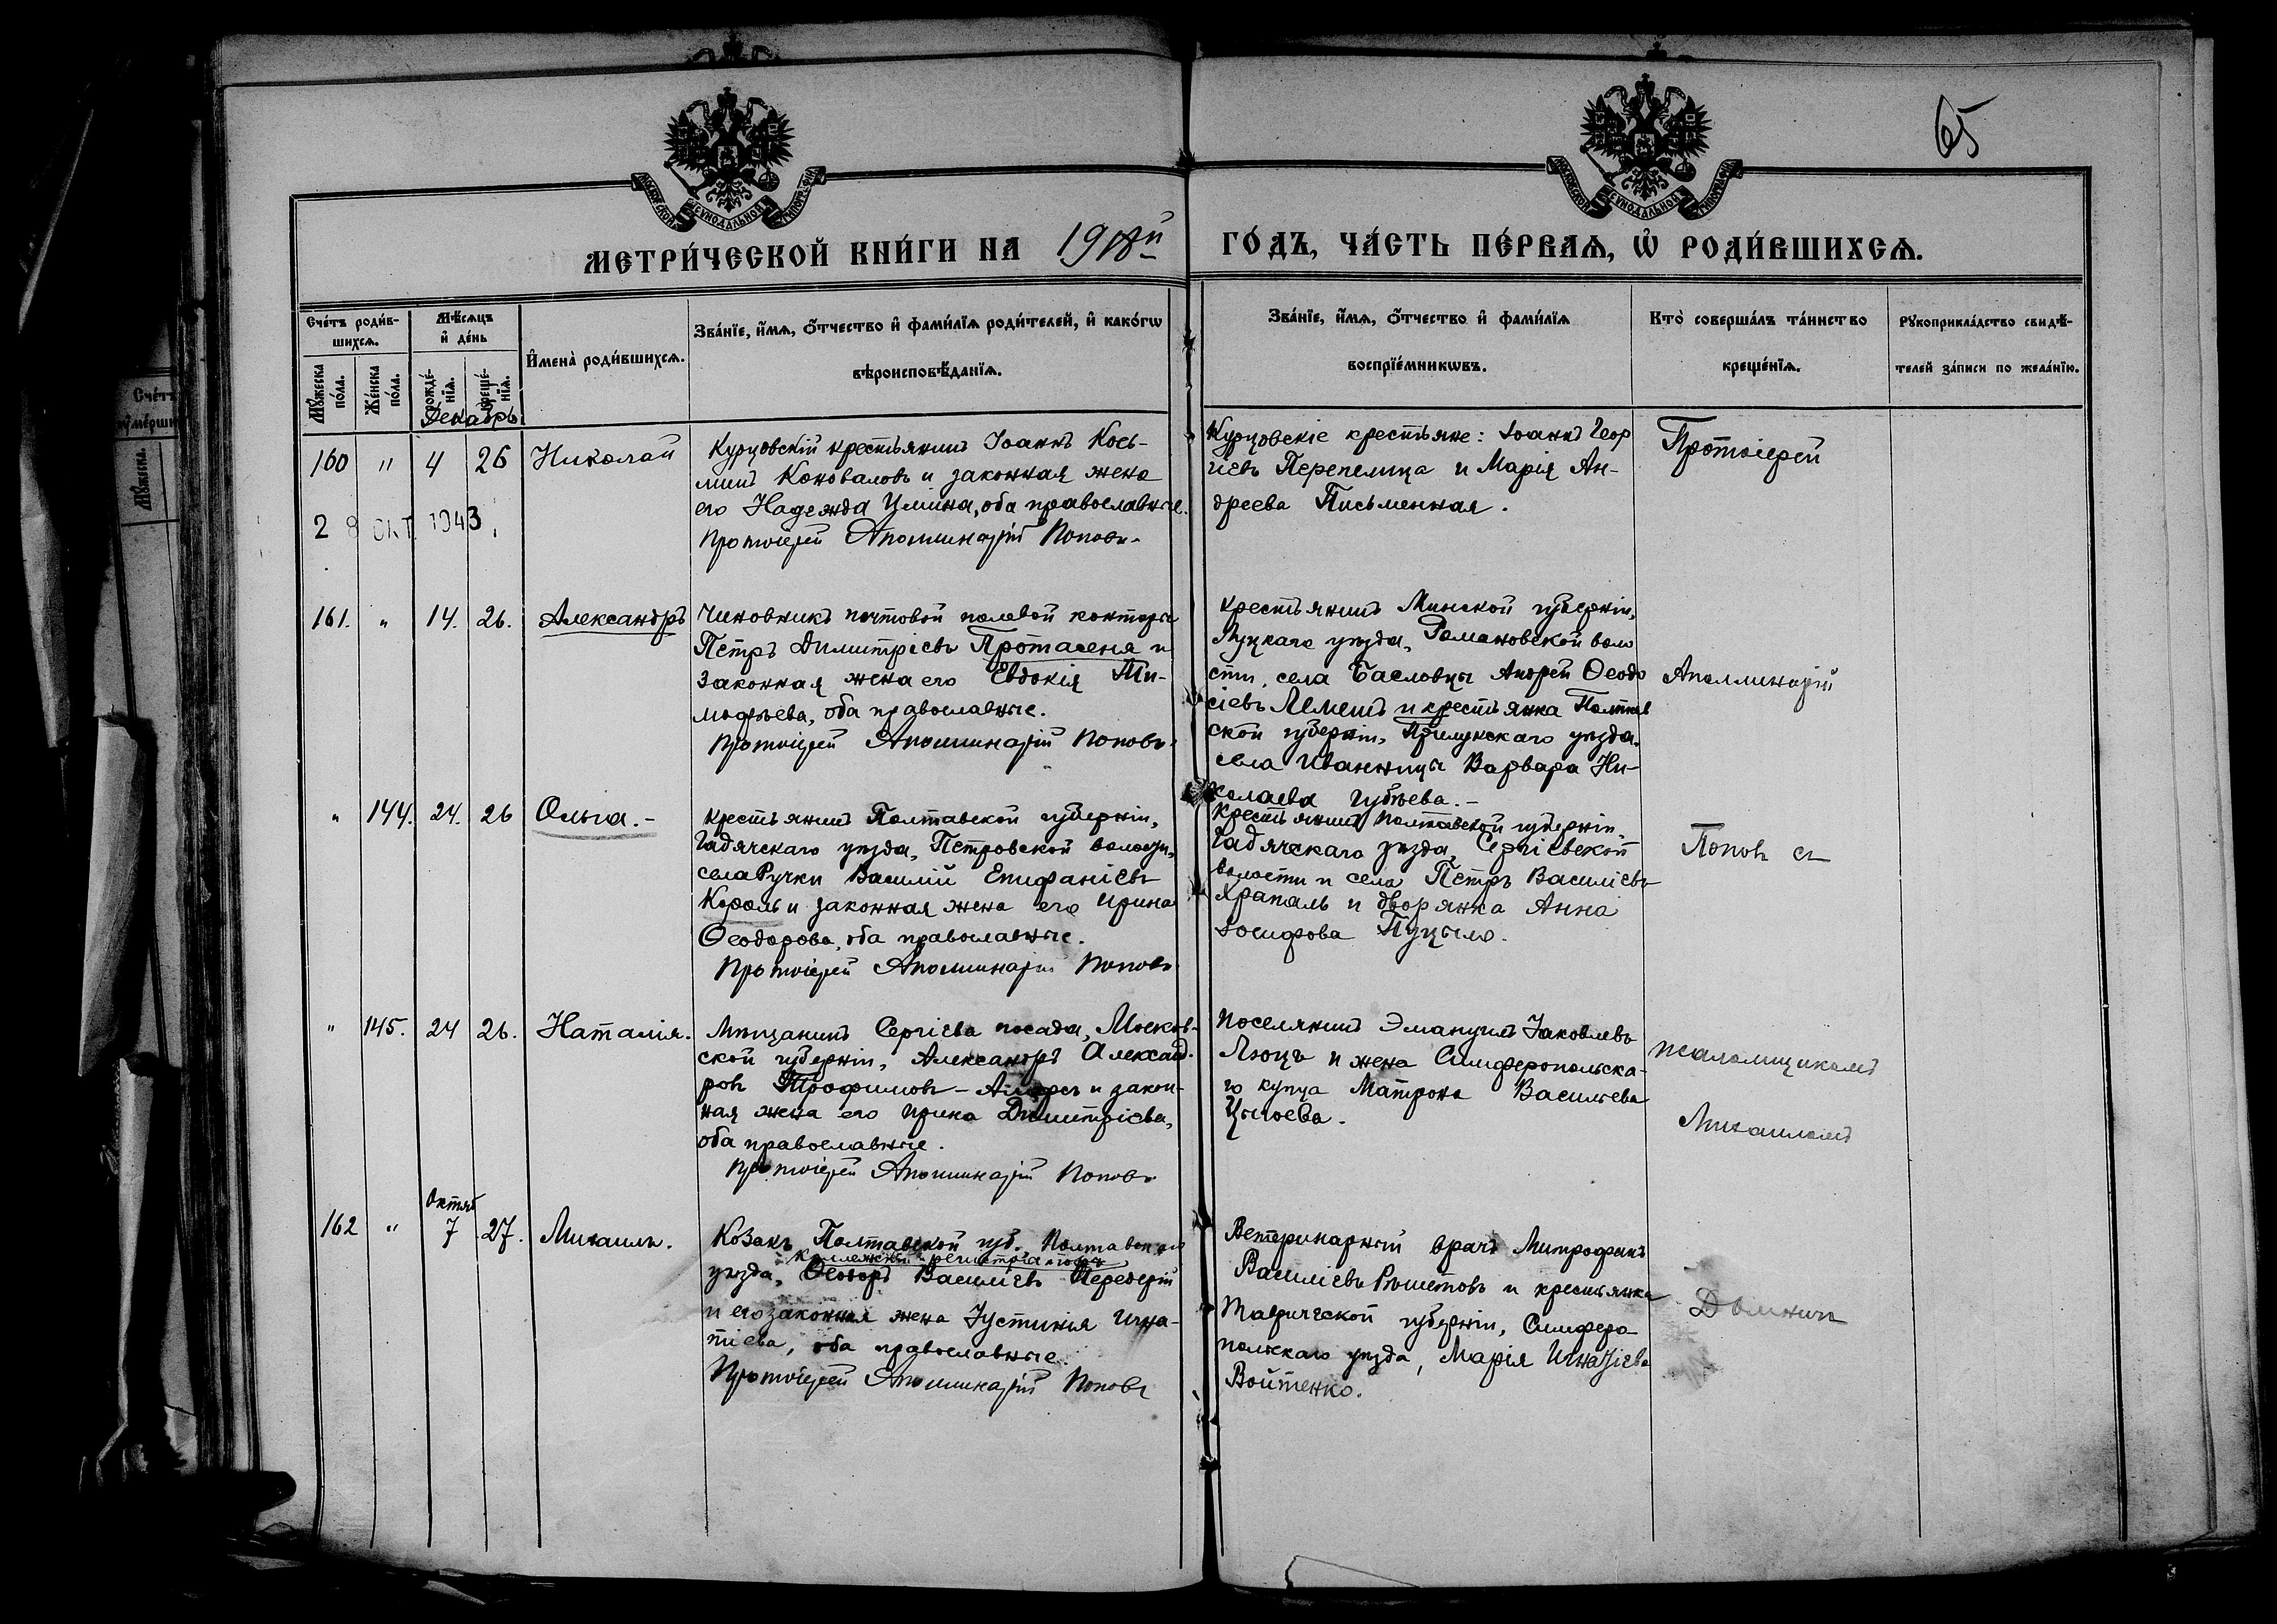 65
МОСКОВСКОЙ СѴНОДАЛЬНОЙ ТИПОГРАФІИ
МОСКОВСКОЙ СѴНОДАЛЬНОЙ ТИПОГРАФІИ
МЕТРИ́ЧЕСКОЙ КНИ́ГИ НА 1918й ГО́ДЪ, ЧА́СТЬ ПЕ́РВАѦ, Ѡ҆ РОДИ́ВШИХСѦ.
Сче́тъ роди́в-
шихсѧ.
Мꙋ́жеска по́ла.
Же́нска по́ла.
Мѣ́сѧцъ
и҆ де́нь
рожде́-нїѧ.
креще́-нїѧ.
И҆мена̀ роди́вшихсѧ.
Зва́нїе, и҆́мѧ, ѻ҆́тчество и҆ фами́лїѧ роди́телей, и҆ како́гѡ
вѣроисповѣ́данїѧ.
Зва́нїе, и҆́мѧ, ѻ҆́тчество и҆ фами́лїѧ
воспрїе́мникѡвъ.
Кто̀ соверша́лъ та́инство
креще́нїѧ.
Рꙋкоприкла́дство свидѣ́-
телей за́писи по жела́нїю.
Декабрь
160 " 4 26 Николай
Курцовскій крестьянинъ Іоаннъ Козь-
минъ Коноваловъ и законная жена
его Надежда Ильина, оба православные.
Протоіерей Аполлинарій Поповъ
Курцовскіе крестьяне: Іоаннъ Геор
гіевъ Перепелица и Марія Ан-
дреева Письменная.
Протоіерей
28 ОКТ 1943
161. " 14. 26. Александръ
Чиновникъ почтовой полевой конторы
Петръ Димитріевъ Протасеня и
законная жена его Евдокія Ти-
мофѣева, оба православные.
Протоіерей Аполлинарій Поповъ
крестьянинъ Минской губерніи,
Луцкаго уѣзда, Романовской воло
сти, села Басловцы Андрей Ѳеодо
сіевъ Лемешъ и крестьянка Полтав
ской губерніи, Прилукскаго уѣзда,
села Иванницы Варвара Ни-
колаева Губѣева.-
Аполлинарій
" 144. 24. 26 Ольга.-
крестьянинъ Полтавской губерніи,
Гадячскаго уѣзда, Петровской волости,
села Ручки Василій Епифаніевъ
Король и законная жена его Ирина
Ѳеодорова, оба православные.
Протоіерей Аполлинарій Поповъ
Крестьянинъ Полтавской губерніи,
Гадячскаго уѣзда, Сергіевской
волости и села Петръ Василіевъ
Храпаль и дворянка Анна
Іосифова Пуцыло.
Поповъ съ
" 145. 24 26. Наталія.
Мѣщанинъ Сергіева посада, Москов-
ской губерніи, Александръ Александ-
ровъ Трофимовъ - и закон-
ная жена его Ирина Димитріева,
оба православные.
Протоіерей Аполлинарій Поповъ
Поселянинъ Эмануилъ Іаковлевъ
Люцъ и жена Симферопольска-
го купца Матрона Васильева
псаломщикомъ
Михаиломъ
Октяб
162 " 7 27. Михаилъ.
Козакъ Полтавской губ. Полтавскаго
коллежскій регистраторъ
уѣзда, Ѳеодоръ Василіевъ Передерій
и его законная жена Іустинія Игна-
тіева, оба православные.
Протоіерей Аполлинарій Поповъ
Ветеринарный врачъ Митрофанъ
Василіевъ Рѣшетовъ и крестьянка
Таврической губерніи, Симферо
польскаго уѣзда, Марія Игнатіева
Войтенко.